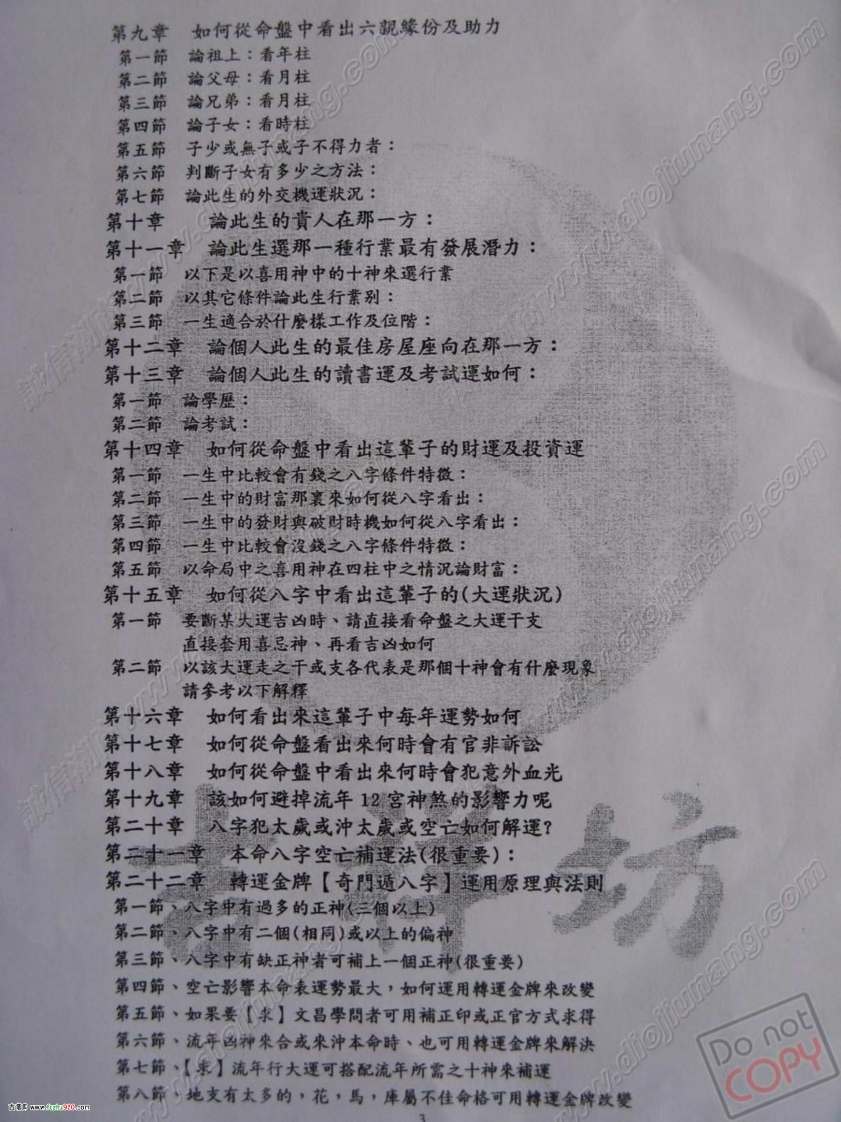 第九章　如何從命盤中看出六親緣份及助力
第一節　論祖上：看年柱
第二節　論父母：看月柱
第三節　論兄弟：看月柱
第四節　論子女：看時柱
第五節　子少或無子或子不得力者：
第六節　判斷子女有多少之方法：
第七節　論此生的外交機運狀況：
第十章　論此生的貴人在那一方：
第十一章　論此生選那一種行業最有發展潛力：
第一節　以下是以喜用神中的十神來選行業
第二節　以其它條件論此生行業別：
第三節　一生適合於什麼樣工作及位階：
第十二章　論個人此生的最佳房屋座向在那一方：
第十三章　論個人此生的讀書運及考試運如何：
第一節　論學歷：
第二節　論考試：
第十四章　如何從命盤中看出這輩子的財運及投資運
第一節　一生中比較會有錢之八字條件特徵：
第二節　一生中的財富那裏來如何從八字看出：
第三節　一生中的發財與破財時機如何從八字看出：
第四節　一生中比較會沒錢之八字條件特徵：
第五節　以命局中之喜用神在四柱中之情況論財富：
第十五章　如何從八字中看出這輩子的(大運狀況)
第一節　要斷某大運吉凶時、請直接看命盤之大運干支
直接套用喜忌神、再看吉凶如何
第二節　以該大運走之干或支各代表是那個十神會有什麼現象
請參考以下解釋
第十六章　如何看出來這輩子中每年運勢如何
第十七章　如何從命盤看出來何時會有官非訴訟
第十八章　如何從命盤中看出來何時會犯意外血光
第十九章　該如何避掉流年12宮神煞的影響力呢
第二十章　八字犯太歲或沖太歲或空亡如何解運?
第二十一章　本命八字空亡補運法(很重要)：
第二十二章　轉運金牌【奇門遁八字】運用原理與法則
第一節、八字中有過多的正神(三個以上)
第二節、八字中有二個(相同)或以上的偏神
第三節、八字中有缺正神者可補上一個正神(很重要)
第四節、空亡影響本命表運勢最大，如何運用轉運金牌來改變
第五節、如果要【求】文昌學問者可用補正印或正官方式求得
第六節、流年凶神來合或來沖本命時、也可用轉運金牌來解決
第七節、【求】流年行大運可搭配流年所需之十神來補運
第八節、地支有太多的，花，馬，庫屬不佳命格可用轉運金牌改變
3
Do not COPY
www.diojiunang.com